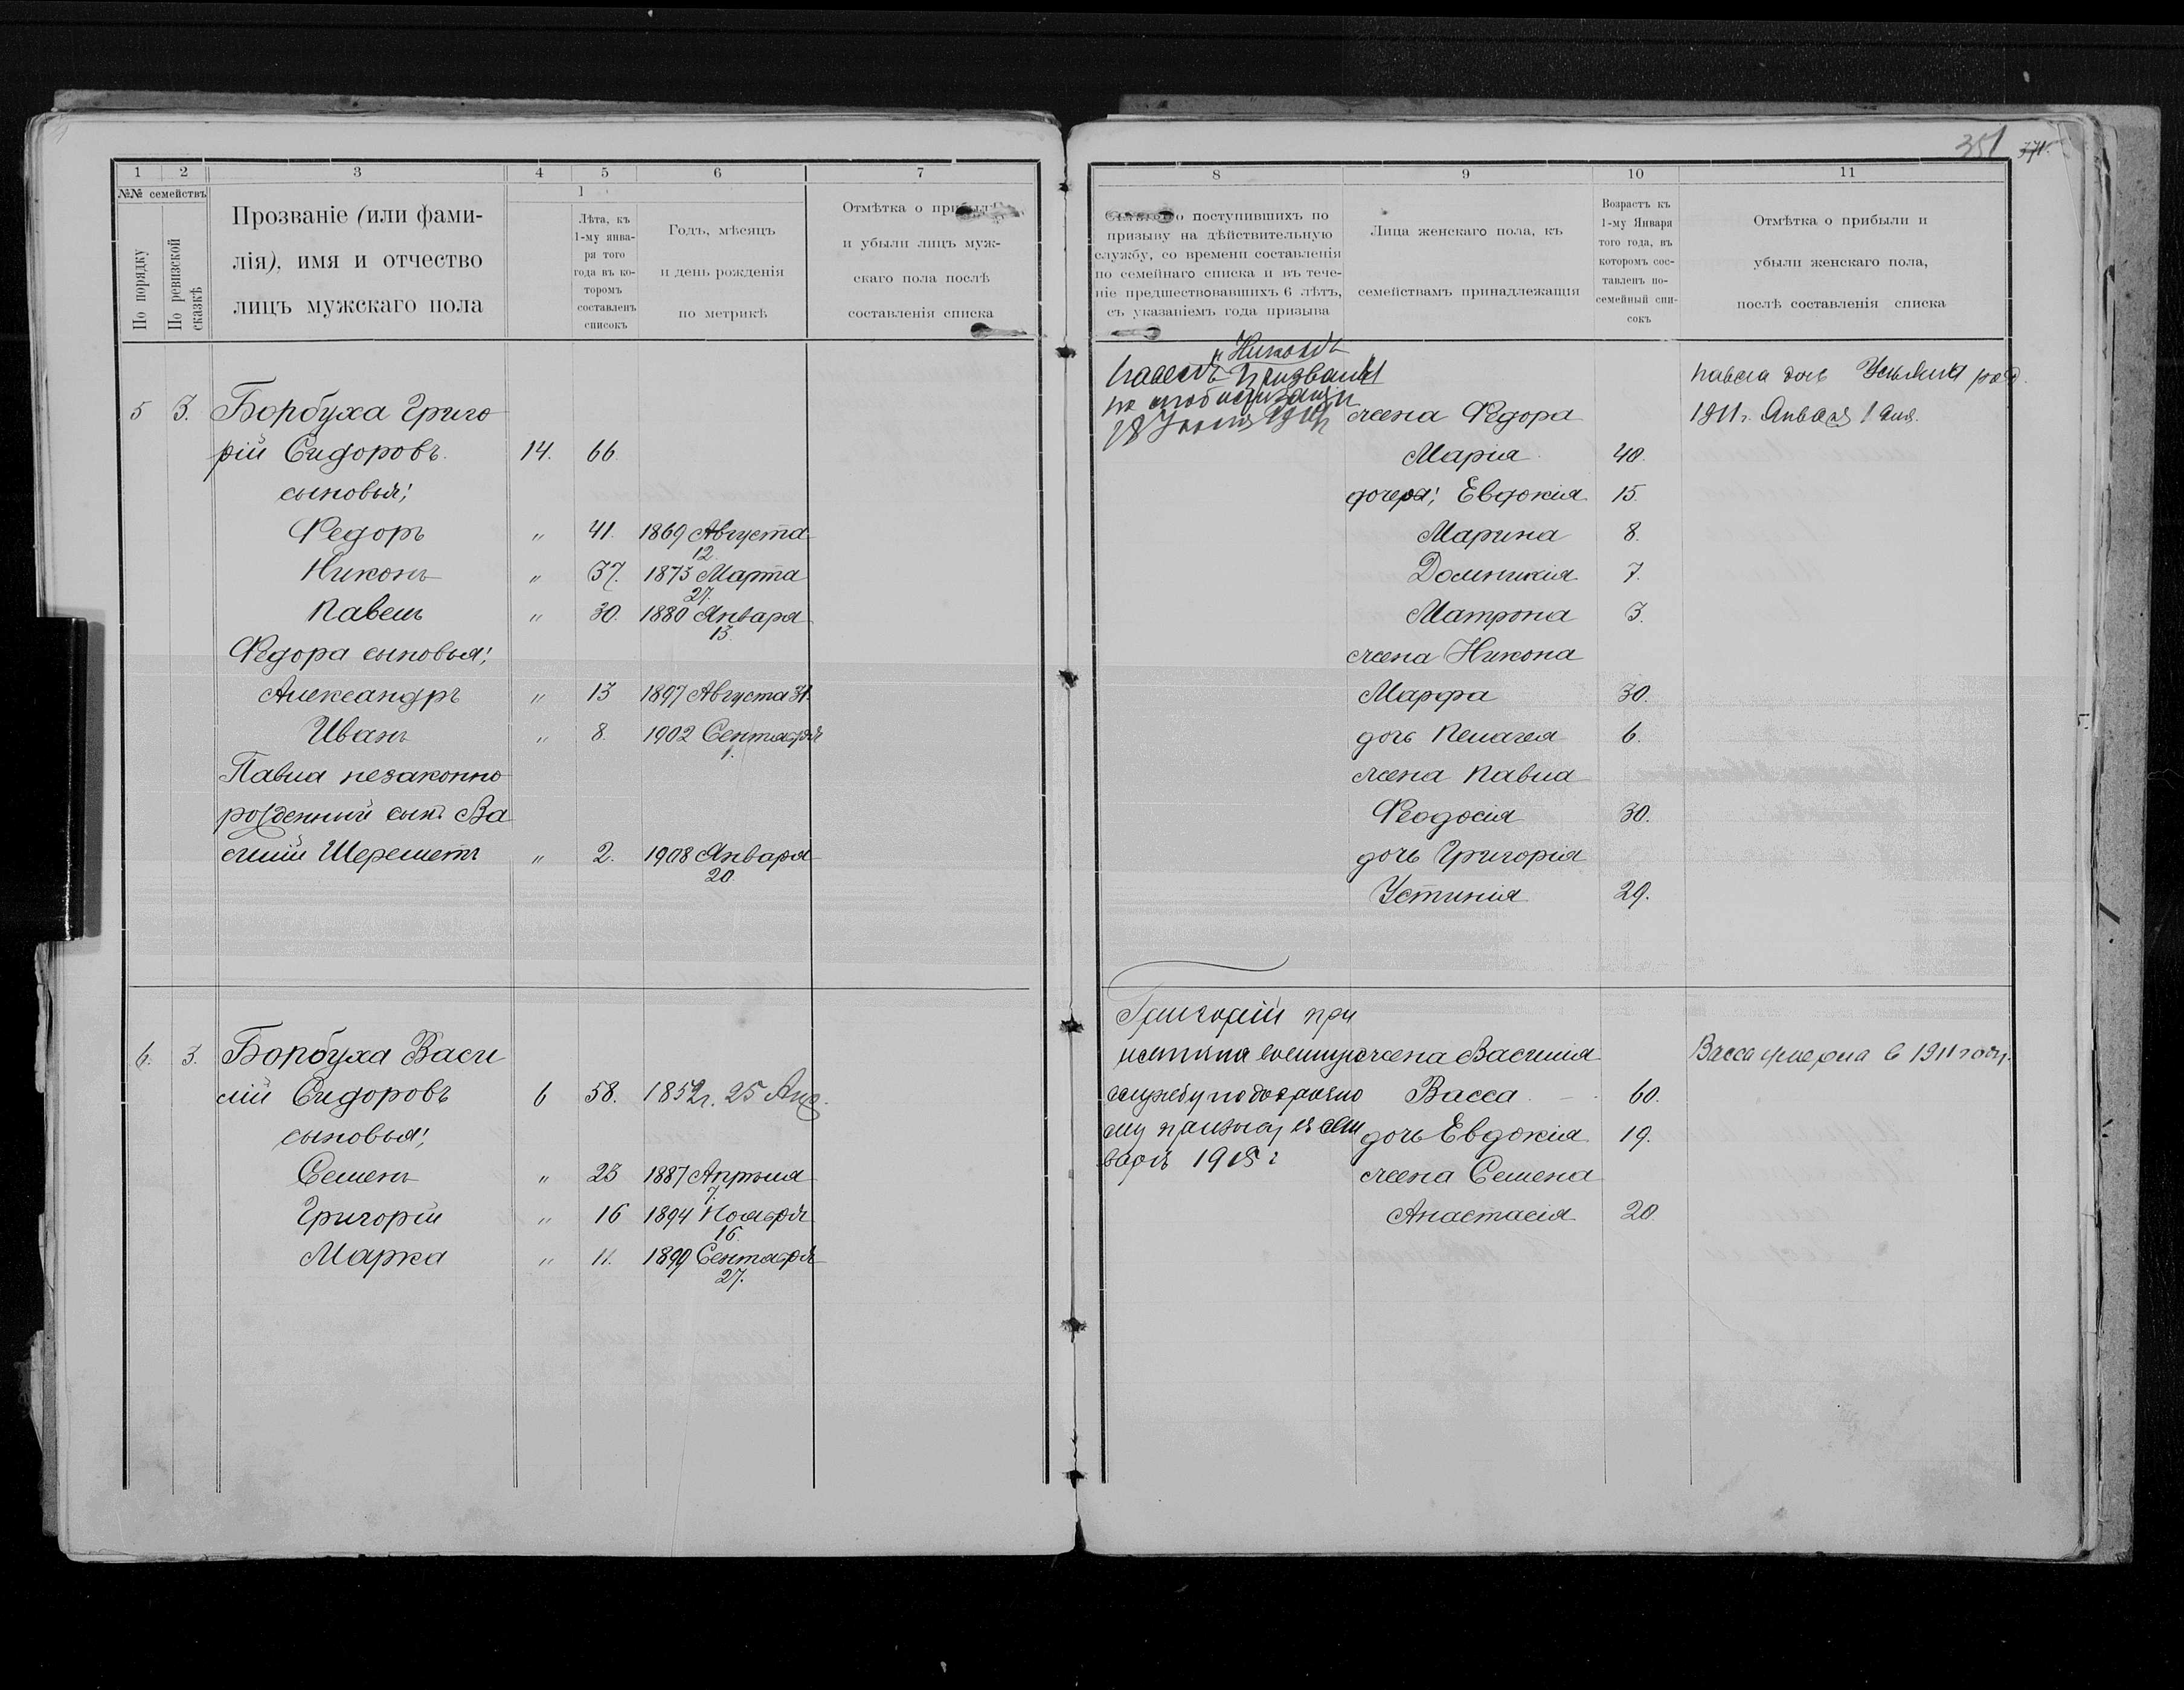 351 371.
1 2 3 4 5 6 7
№№ семействъ
По порядку
По ревизской сказкѣ
Прозваніе (или фами-
лія), имя и отчество
лицъ мужскаго пола
Лѣта, къ
1-му янва-
ря того
года въ ко-
торомъ
составленъ
списокъ
Годъ, мѣсяцъ
и день рожденія
по метрикѣ
Отмѣтка о
и убыли лицъ муж-
скаго пола послѣ
составленія списка
5 3. Борбуха Григо
рій Сидоровъ. 14. 66.
сыновья:
Федоръ " 41. 1869 Августа
12.
Никонъ " 37. 1873 Марта
27.
Павелъ " 30. 1880 Января
13.
Федора сыновья:
Александръ " 13 1897 Августа 31.
Иванъ " 8. 1902 Сентября
1.
Павла незаконно
рожденный сынъ Ва
силій Шереметъ " 2. 1908 Января
20.
6. 3. Борбуха Васи
лій Сидоровъ 6 58. 1852г. 25 Апр.
сыновья:
Семенъ " 23 1887 Апрѣля
7.
Григорій " 16 1894 Ноября
16.
Марка " 11. 1899 Сентября
27.
8 9 10 11
поступившихъ по
призыву на дѣйствительную
службу, со времени составленія
по семейнаго списка и въ тече-
ніе предшествовавшихъ 6 лѣтъ,
съ указаніемъ года призыва
Лица женскаго пола, къ
семействамъ принадлежащія
Возрастъ къ
1-му Января
того года, въ
которомъ сос-
тавленъ по-
семейный спи-
сокъ
Отмѣтка о прибыли и
убыли женскаго пола,
послѣ составленія списка
и Никонъ
Павелъ призваны
по мобилизаціи
18 Іюля
Павла дочь род.
1911г. Января 1 дня.
жена Федора
Марія 40.
дочери: Евдокія 15.
Марина 8.
Домникія 7.
Матрона 3.
жена Никона
Марфа 30.
дочь Пелагея 6.
жена Павла
Феодосія 30.
дочь Григорія
Устинія 29.
Григорій при
на военную
службу по досрочно
му призыву въ Ян
варѣ 1915 г
жена Василія
Васса 60.
дочь Евдокія 19.
жена Семена
Анастасія 20.
Васса умерла в 1911 году.